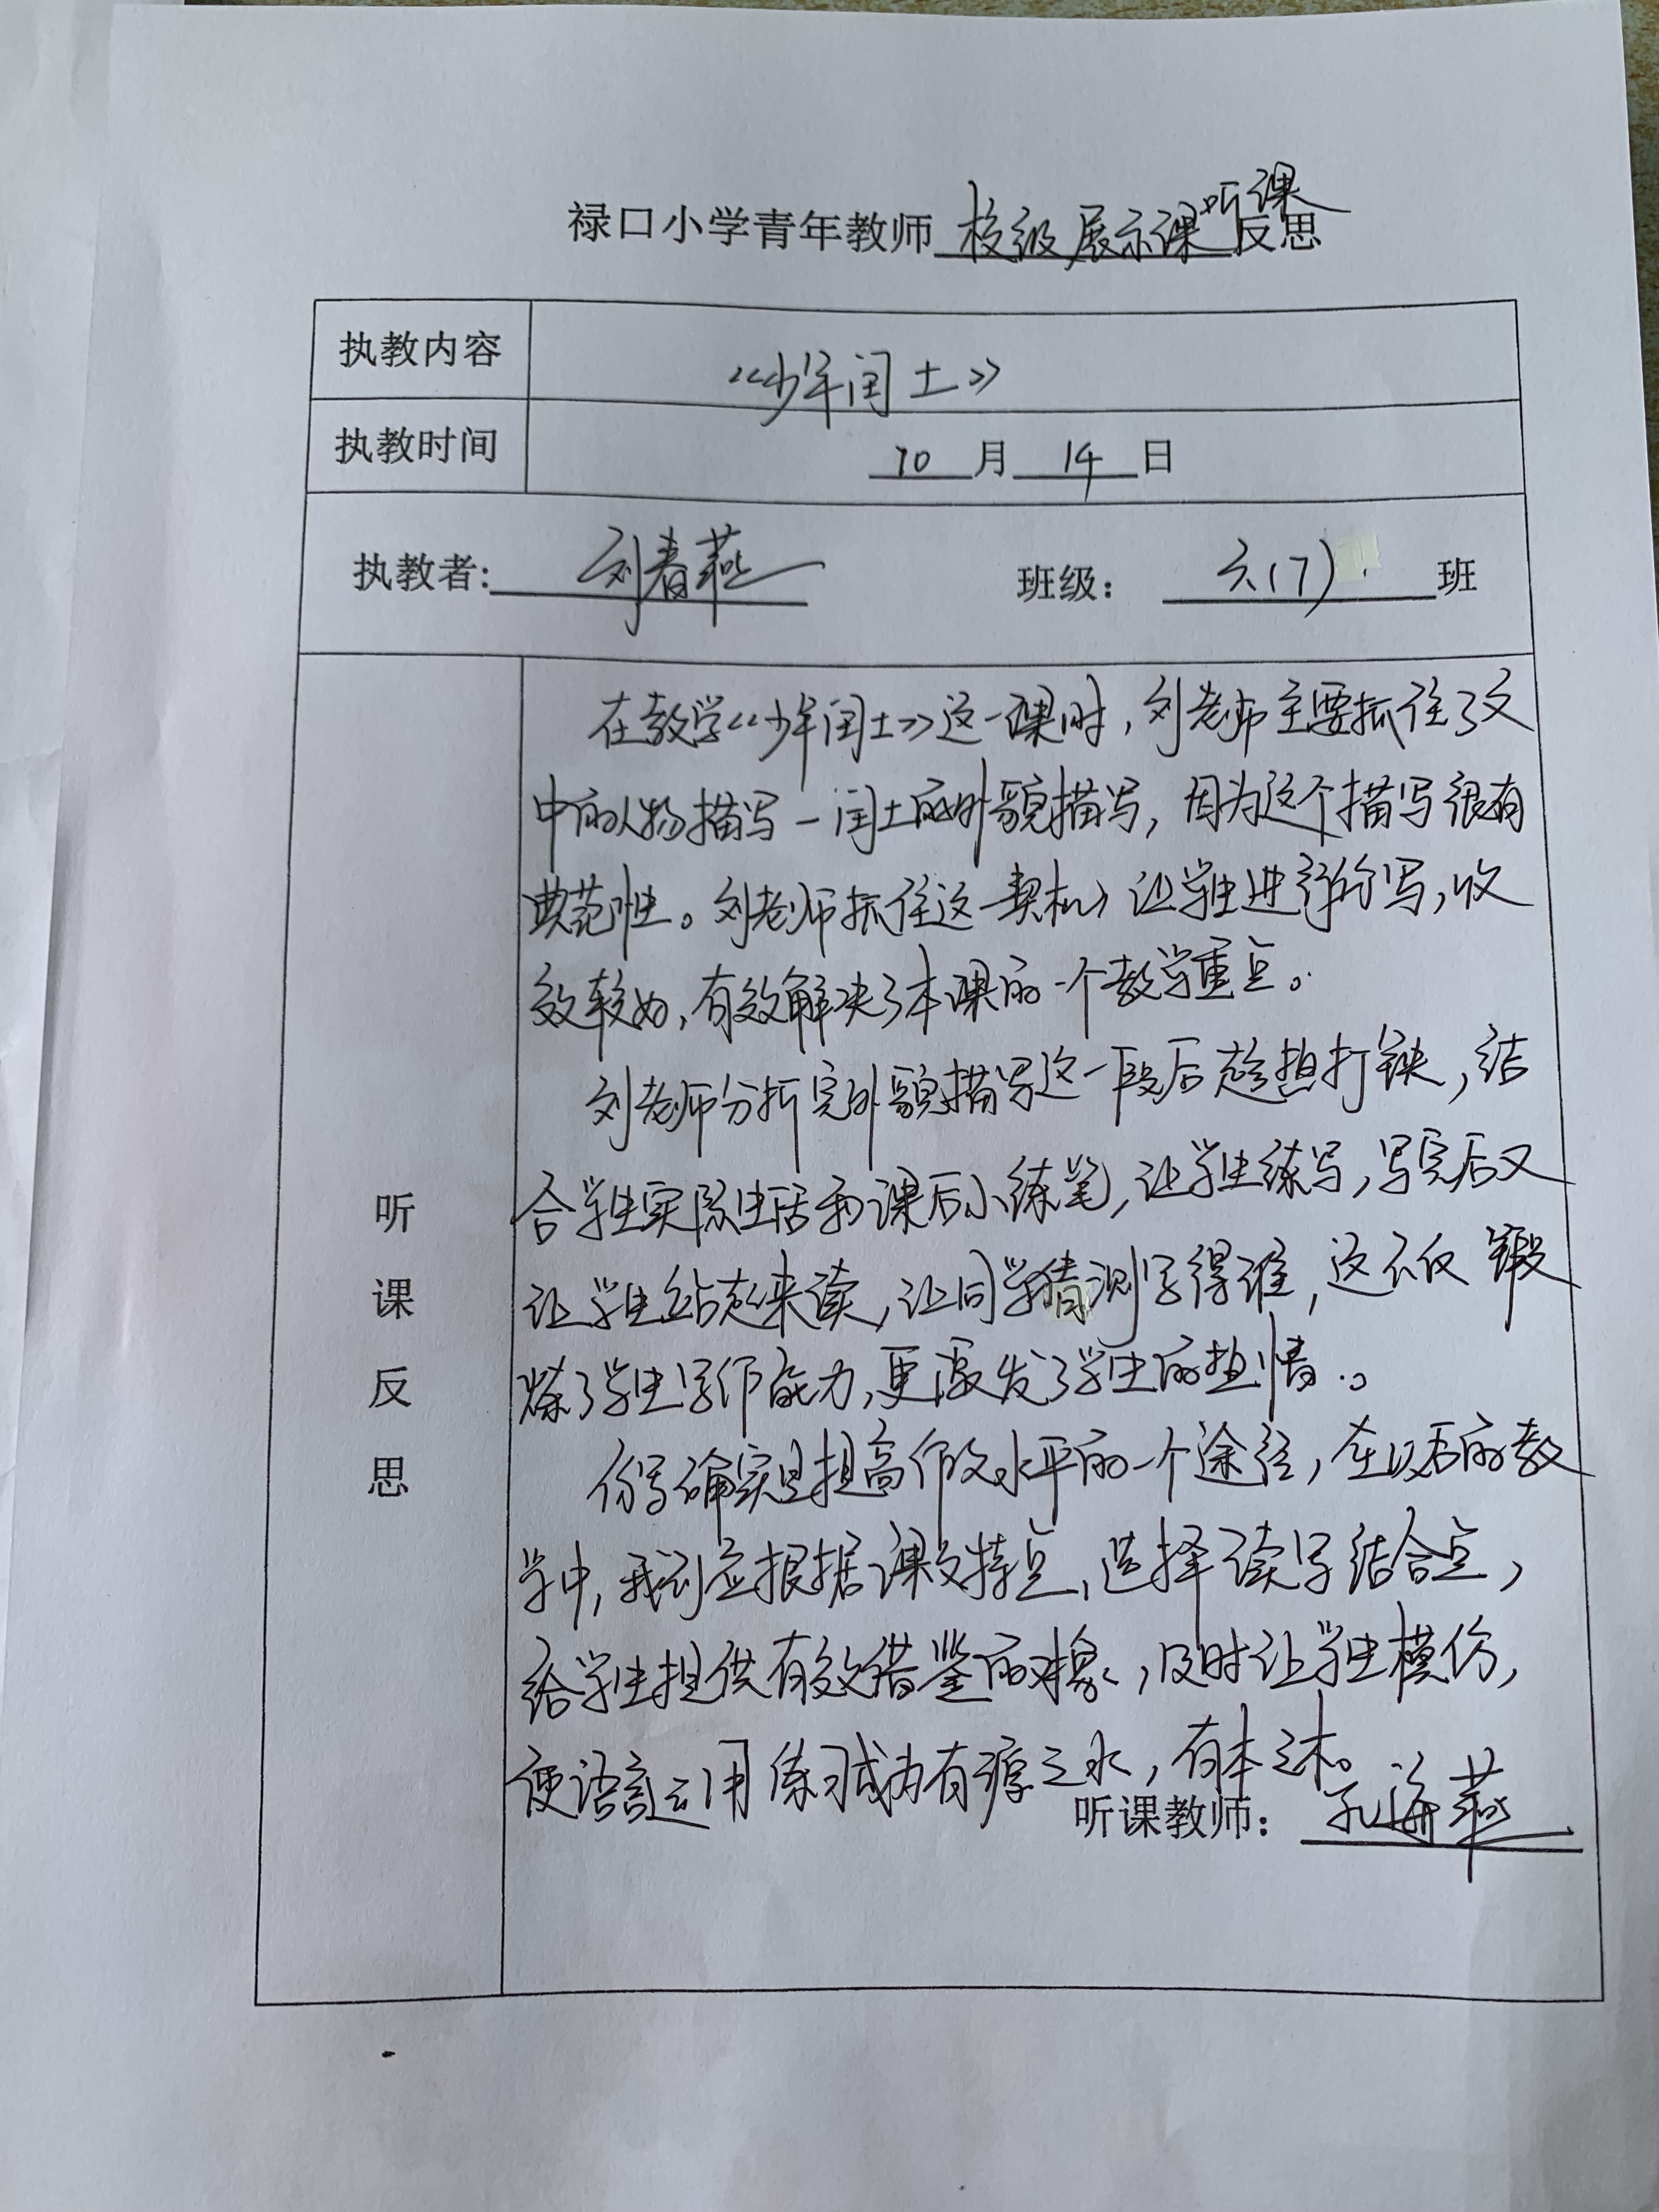 听课
禄口小学青年教师校级展示课反思
执教内容 《少年闰土》
执教时间 10月14日
执教者:刘春燕 班级:六(7)班
听课反思
在教学《少年闰土》这一课时,刘老师主要抓住了文
中的人物描写—闰土的外貌描写,因为这个描写很有
典范性。刘老师抓住这一契机,让学生进行仿写,收
效较好,有效解决了本课的一个教学重点。
刘老师分析完外貌描写这一段后趁热打铁,结
合学生实际生活和课后小练笔,让学生练写,写完后又
让学生站起来读,让同学猜测写得谁,这不仅锻
炼了学生写作能力,更激发了学生的热情。
仿写确实是提高作文水平的一个途径,在以后的教
学中,我们应根据课文特点,选择读写结合点,
给学生提供有效借鉴的对象,及时让学生模仿,
使语言运用练习成为有源之水,有本之木。
听课教师:孔海燕